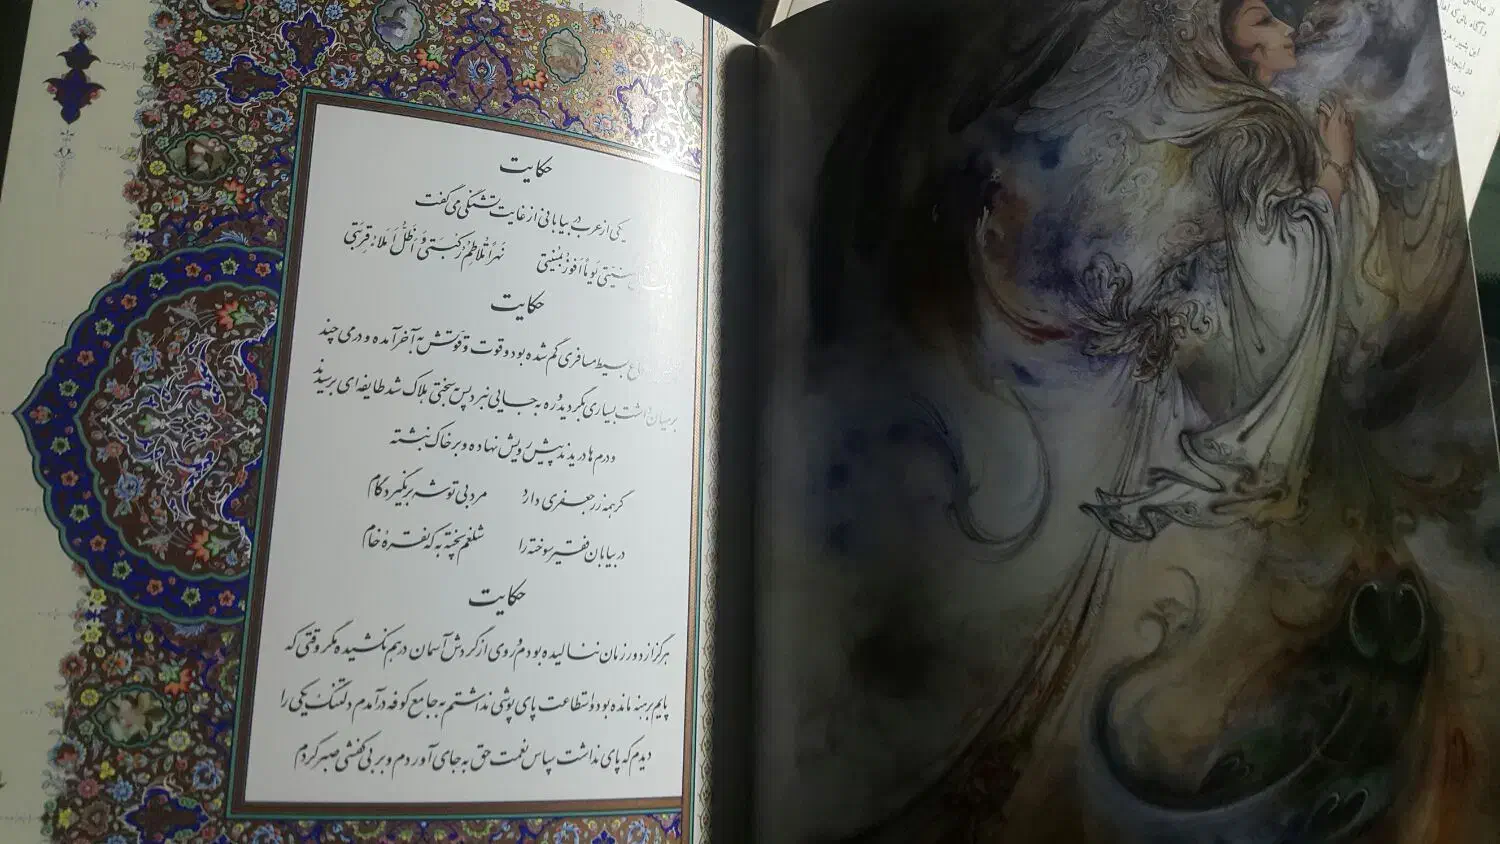 حکایت
یکی از عرب در بیابانی از غایت تشنگی می‌گفت
منیتی یَوماً اَفوزُ بمُنیتی نَهراً تُلاطِمُ رُکبَتی وَ اَظَلُّ اَملَاءُ قِربَتی
حکایت
بسیط مسافری گم شده بود و قوت و قوتش به آخر آمده و درمی چند
بر میان داشت بسیاری بگردید و ره به جایی نبرد پس به سختی هلاک شد طایفه‌ای برسیدند
و درم‌ها دیدند پیش رویش نهاده و بر خاک نبشته
گر همه زر جعفری دارد مرد بی توشه برنگیرد کام
در بیابان فقیر سوخته را شلغم پخته به که نقرهٔ خام
حکایت
هرگز از دور زمان ننالیده بودم و روی از گردش آسمان در هم نکشیده مگر وقتی که
پایم برهنه مانده بود و استطاعت پای پوشی نداشتم به جامع کوفه در آمدم دلتنگ یکی را
دیدم که پای نداشت سپاس نعمت حق به جای آوردم و بر بی کفشی صبر کردم